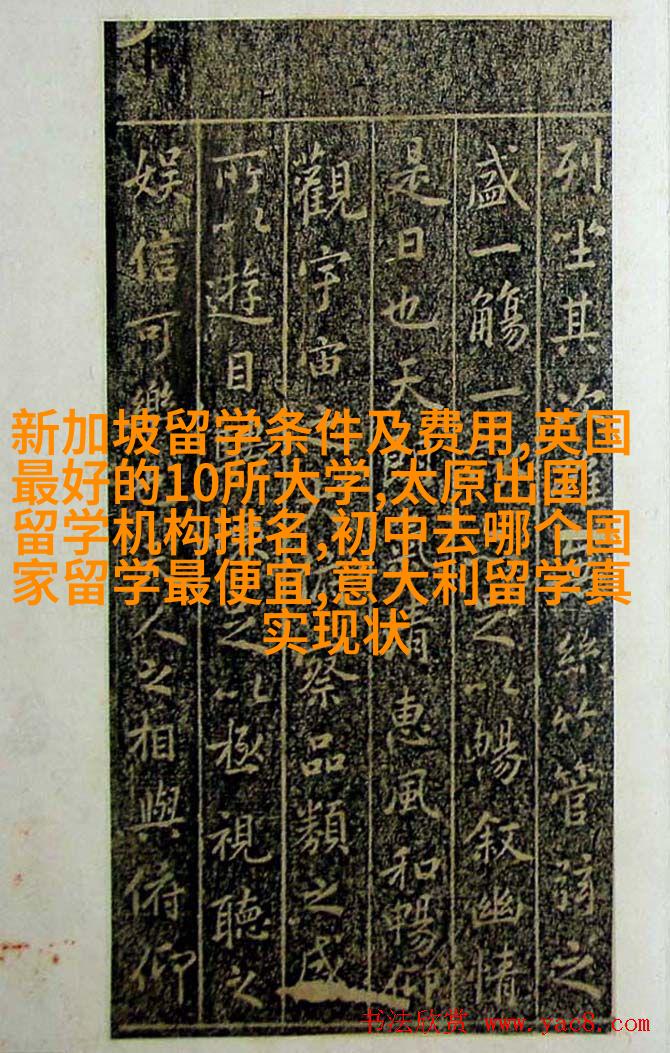 列坐其
絲竹管弦之
盛一觴一
之以暢叙幽情
是日也天
風清惠風和暢仰
觀宇宙
察品類之盛
所以遊目
以極視聽之
娛信可樂
人之相與俯仰
新加坡留学条件及费用,英国
最好的10所大学,太原出国
留学机构排名,初中去哪个国
家留学最便宜,意大利留学真
实现状
书法欣赏 www.yac8.com